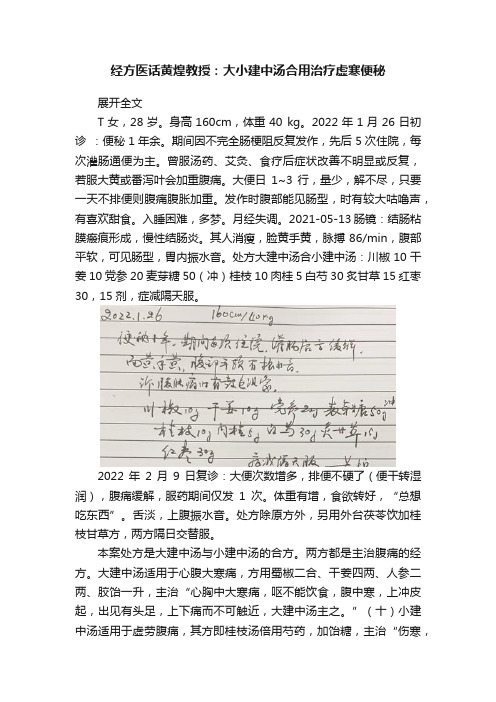 经方医话黄煌教授：大小建中汤合用治疗虚寒便秘
展开全文
T女，28岁。身高160cm，体重40 kg。2022年1月26日初
诊 ：便秘1年余。期间因不完全肠梗阻反复发作，先后5次住院，每
次灌肠通便为主。曾服汤药、艾灸、食疗后症状改善不明显或反复，
若服大黄或番泻叶会加重腹痛。大便日1~3行，量少，解不尽，只要
一天不排便则腹痛腹胀加重。发作时腹部能见肠型，时有较大咕噜声，
有喜欢甜食。入睡困难，多梦。月经失调。2021-05-13肠镜：结肠粘
膜瘢痕形成，慢性结肠炎。其人消瘦，脸黄手黄，脉搏86/min，腹部
平软，可见肠型，胃内振水音。处方大建中汤合小建中汤：川椒10干
姜10党参20麦芽糖50（冲）桂枝10肉桂5白芍30炙甘草15红枣
30，15剂，症减隔天服。
2022.1.26 160cm/40kg
便秘十年，期间多次住院，灌肠后方缓解，
面黄手黄，腹部平软有振水音。
川椒10g 干姜10g 党参20g 麦芽糖50g冲
桂枝10g 肉桂5g 白芍30g 炙甘草15g
红枣30g 症减隔天服 ×15
2022年2月9日复诊：大便次数增多，排便不硬了（便干转湿
润），腹痛缓解，服药期间仅发1次。体重有增，食欲转好，“总想
吃东西”。舌淡，上腹振水音。处方除原方外，另用外台茯苓饮加桂
枝甘草方，两方隔日交替服。
本案处方是大建中汤与小建中汤的合方。两方都是主治腹痛的经
方。大建中汤适用于心腹大寒痛，方用蜀椒二合、干姜四两、人参二
两、胶饴一升，主治“心胸中大寒痛，呕不能饮食，腹中寒，上冲皮
起，出见有头足，上下痛而不可触近，大建中汤主之。”（十）小建
中汤适用于虚劳腹痛，其方即桂枝汤倍用芍药，加饴糖，主治“伤寒，